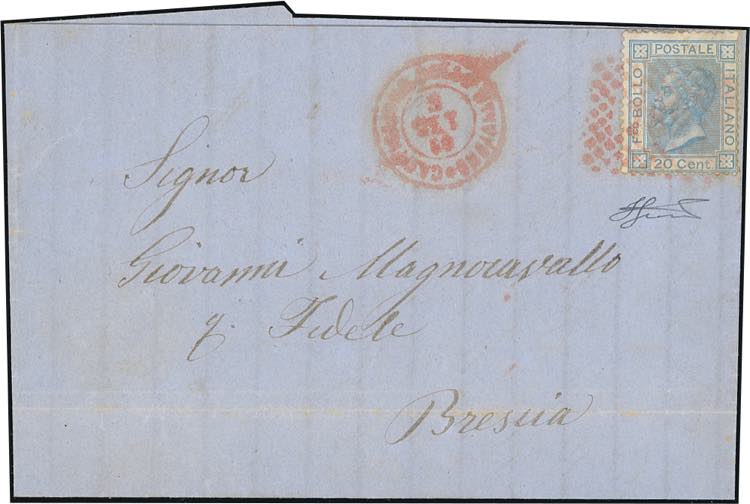 Fco BOLLO POSTALE ITALIANO
20 Cent
Signor
Giovanni Magnocavallo
q. Fedele
Brescia